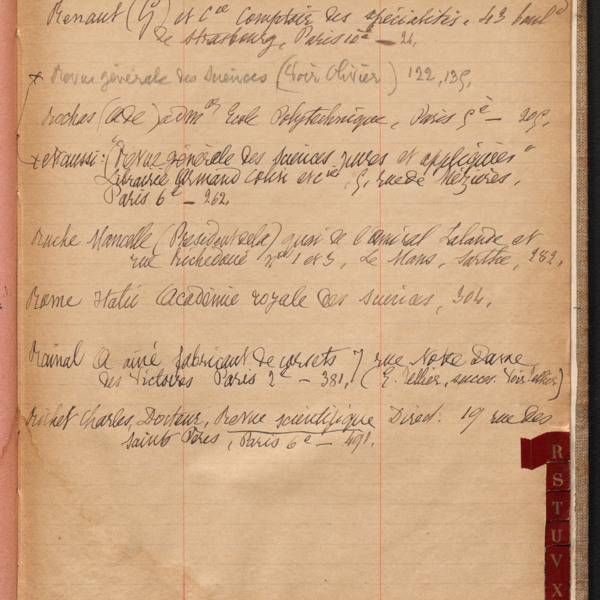 Renaut (G) et Cie Comptoir des spécialités. 43 boul.d
de Strasbourg, Paris 10e — 24.
x Revue générale des Sciences (Voir Olivier) 122, 135,
Rochas (A de) admr Ecole Polytechnique, Paris 5e — 205.
x et aussi: "Revue générale des sciences pures et appliquées"
Librairie Armand Colin et Cie, 5, rue de Mézières,
Paris 6e — 262.
Ruche Mancelle (Président de la) quai de l'amiral Lalande et
rue Richedoué nos 1 et 3, Le Mans, Sarthe, 282.
Rome Italie Académie royale des Sciences, 304.
Rainal A aîné fabricant de corsets 7 rue Notre Dame
des Victoires Paris 2e — 381. (E. Tellier, succes. Voir Tellier)
Richet Charles, Docteur, Revue scientifique Direct. 19 rue des
Saints Pères, Paris 6e — 491.
R
S
T
U
V
X